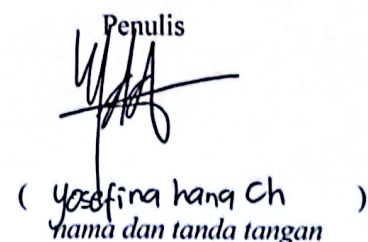 Penulis
( yosefina hana Ch )
nama dan tanda tangan